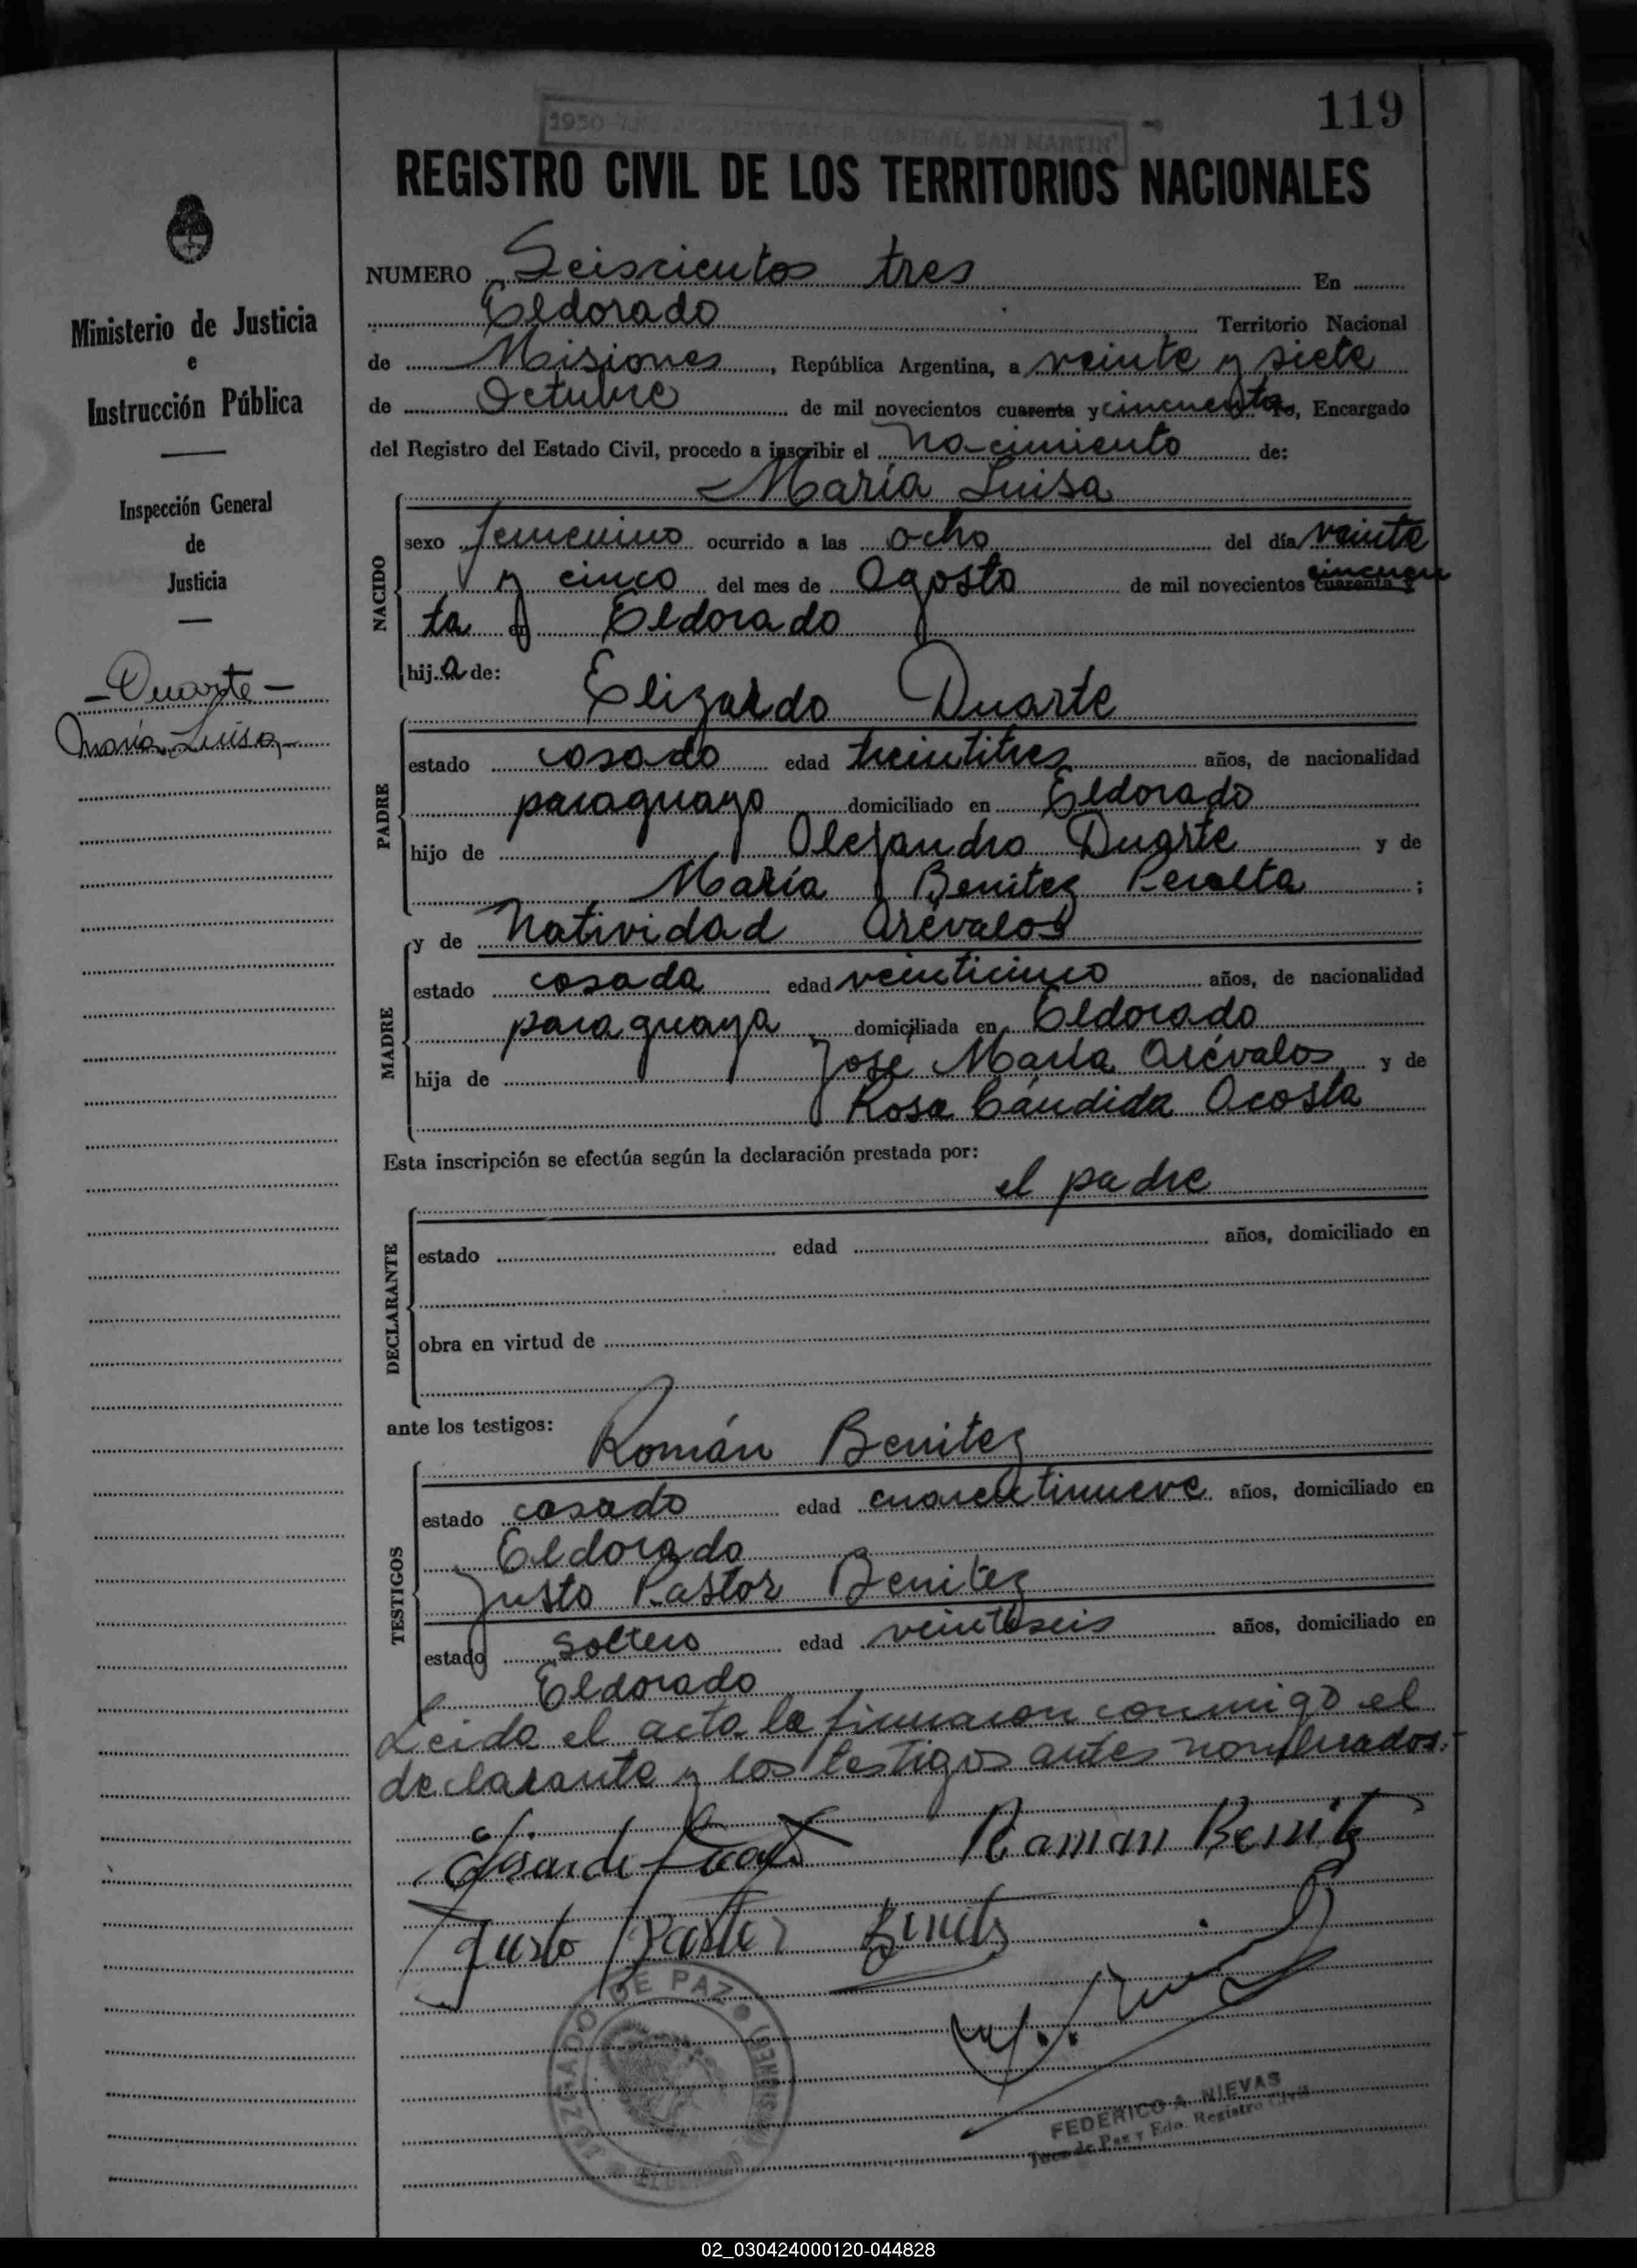 119
1950 - AÑO DEL LIBERTADOR GENERAL SAN MARTIN
REGISTRO CIVIL DE LOS TERRITORIOS NACIONALES
Ministerio de Justicia
e
Instrucción Pública
Inspección General
de
Justicia
- Duarte -
María Luisa -
NUMERO Seiscientos tres En
Eldorado Territorio Nacional
de Misiones, República Argentina, a veinte y siete
de Octubre de mil novecientos cuarenta y cincuenta, Encargado
del Registro del Estado Civil, procedo a inscribir el nacimiento de:
María Luisa
NACIDO
sexo femenino ocurrido a las ocho del día veinte
y cinco del mes de Agosto de mil novecientos cuarenta y cincuen
ta en Eldorado
hija de:
Elizardo Duarte
PADRE
estado casado edad treintitres años, de nacionalidad
paraguayo domiciliado en Eldorado
hijo de Alejandro Duarte y de
María Benitez Peralta ;
y de Natividad Arévalos
MADRE
estado casada edad veinticinco años, de nacionalidad
paraguaya domiciliada en Eldorado
hija de José María Arévalos y de
Rosa Cándida Acosta
Esta inscripción se efectúa según la declaración prestada por:
el padre
DECLARANTE
estado edad años, domiciliado en
obra en virtud de
ante los testigos:
Román Benitez
TESTIGOS
estado casado edad cuarentinueve años, domiciliado en
Eldorado
Justo Pastor Benitez
estado soltero edad veinteseis años, domiciliado en
Eldorado
Leida el acta la firmaron conmigo el
declarante y los testigos antes nombrados.-
Raman Benitz
Justo Pastor Benits
JUZGADO DE PAZ
FEDERICO A. NIEVAS
Juez de Paz y Edo. Registro Civil
02_030424000120-044828